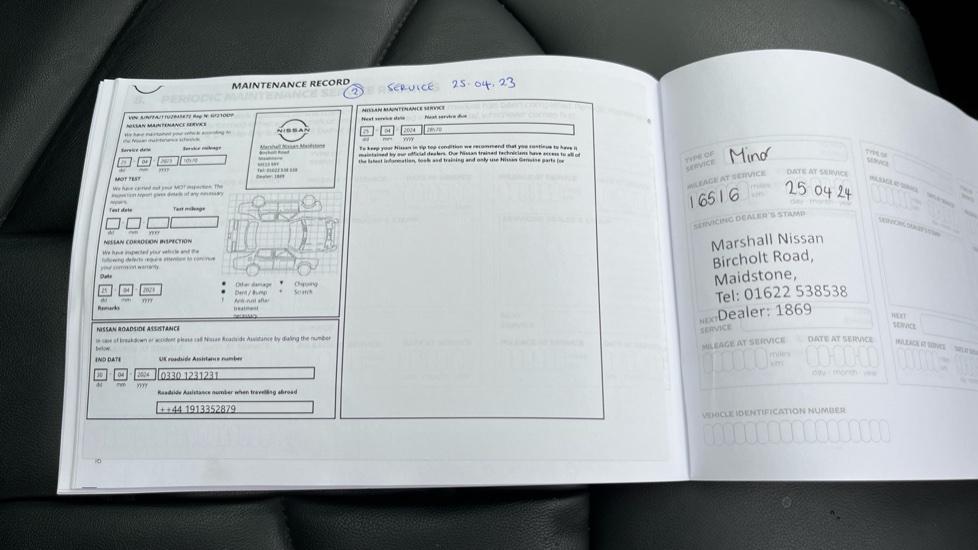 MAINTENANCE RECORD
② SERVICE 25.04.23
NISSAN MAINTENANCE SERVICE
We have maintained your vehicle according to
the Nissan maintenance schedule.
Service date Service mileage
25 04 2023
dd mm yyyy
MOT TEST
We have carried out your MOT inspection. The
inspection report gives details of any necessary
repairs.
Test date Test mileage
dd mm yyyy
NISSAN CORROSION INSPECTION
We have inspected your vehicle and the
following defects require attention to continue
your corrosion warranty.
Date
25 04 2023
dd mm yyyy
Remarks
NISSAN
Marshall Nissan Maidstone
Bircholt Road
Maidstone
Tel: 01622 538 538
Dealer: 1869
Other damage
Dent / Bump
Anti-rust after
treatment
necessary
Chipping
Scratch
NISSAN ROADSIDE ASSISTANCE
In case of breakdown or accident please call Nissan Roadside Assistance by dialing the number
below.
END DATE UK roadside Assistance number
30 04 2024 0330 1231231
dd mm yyyy
Roadside Assistance number when travelling abroad
++44 1913352879
10
NISSAN MAINTENANCE SERVICE
Next service date Next service due
25 04 2024 28570
dd mm yyyy
To keep your Nissan in tip top condition we recommend that you continue to have it
maintained by our official dealers. Our Nissan trained technicians have access to all of
the latest information, tools and training and only use Nissan Genuine parts (or
TYPE OF
SERVICE Minor
MILEAGE AT SERVICE DATE AT SERVICE
16516 miles 25 04 24
km day - month - year
SERVICING DEALER'S STAMP
Marshall Nissan
Bircholt Road,
Maidstone,
Tel: 01622 538538
Dealer: 1869
NEXT
SERVICE
MILEAGE AT SERVICE DATE AT SERVICE
miles
km day - month - year
VEHICLE IDENTIFICATION NUMBER
TYPE OF
SERVICE
MILEAGE AT SERVICE
NEXT
SERVICE
MILEAGE AT SERVICE